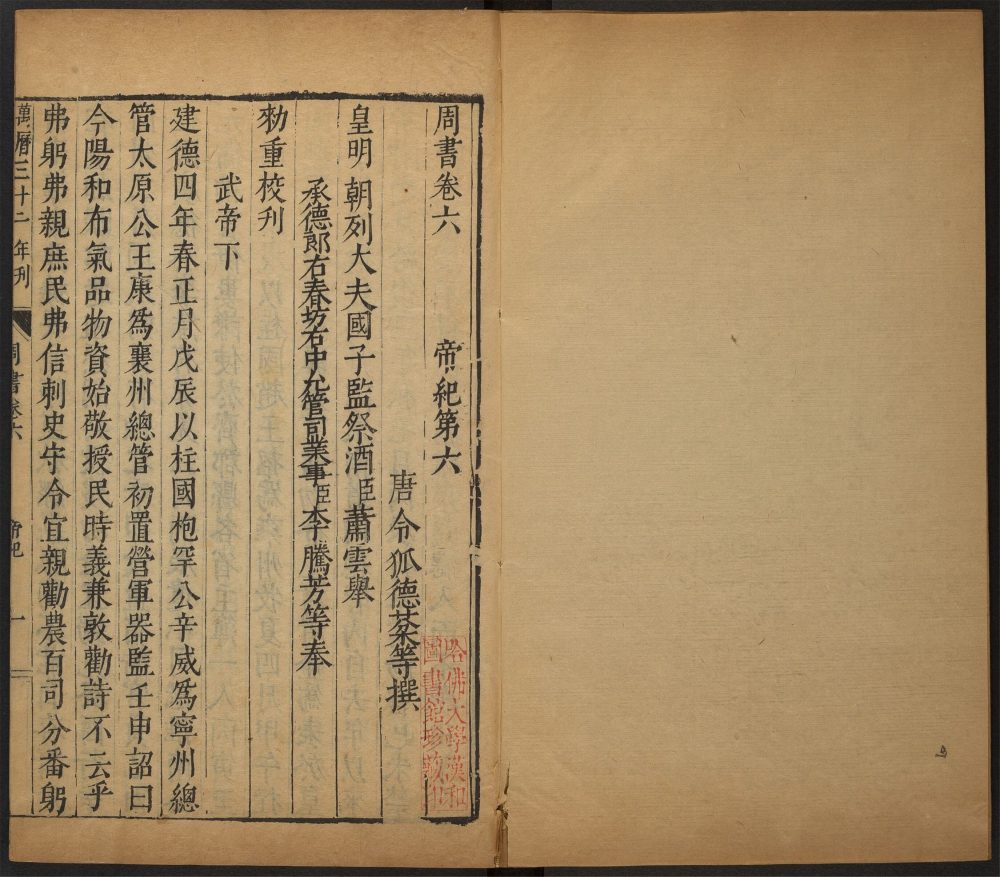 周書卷六　帝紀第六
唐令狐德棻等撰
皇明朝列大夫國子監祭酒臣蕭雲舉
承德郎右春坊右中允管司業事臣李騰芳等奉
勑重校刋
武帝下
建德四年春正月戊辰以柱國枹罕公辛威爲寧州總
管太原公王康爲襄州總管初置營軍器監壬申詔曰
今陽和布氣品物資始敬授民時義兼敦勸詩不云乎
弗躬弗親庶民弗信刺史守令宜親勸農百司分番躬
萬曆三十二年刋
周書卷六　帝紀　一
哈佛大學漢和
圖書館珍藏印
9